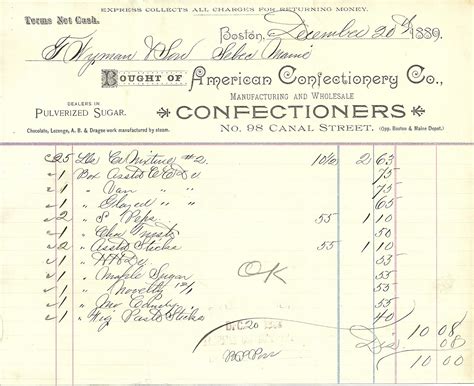 EXPRESS COLLECTS ALL CHARGES FOR RETURNING MONEY.
Terms Net Cash.
Boston, December 20th 1889.
Wyman & Son Sebec Maine
BOUGHT OF American Confectionery Co.,
MANUFACTURING AND WHOLESALE
DEALERS IN
PULVERIZED SUGAR.
CONFECTIONERS
Chocolate, Lozenge, A. B. & Dragee work manufactured by steam.
No. 98 CANAL STREET. (Opp. Boston & Maine Depot.)
25 Lbs #2 10½ 2 63
1 Box Asstd 75
1 " Van " 75
1 " Glazed " 55
2 " S Pops 55 1 10
1 " 50
2 " Asstd Sticks 55 1 10
1 " 53
1 " Maple Sugar 55
1 " Novelty 40
1 "
1 " Sticks 55
OK
DEC 20
10 08
Dis 08
10 00